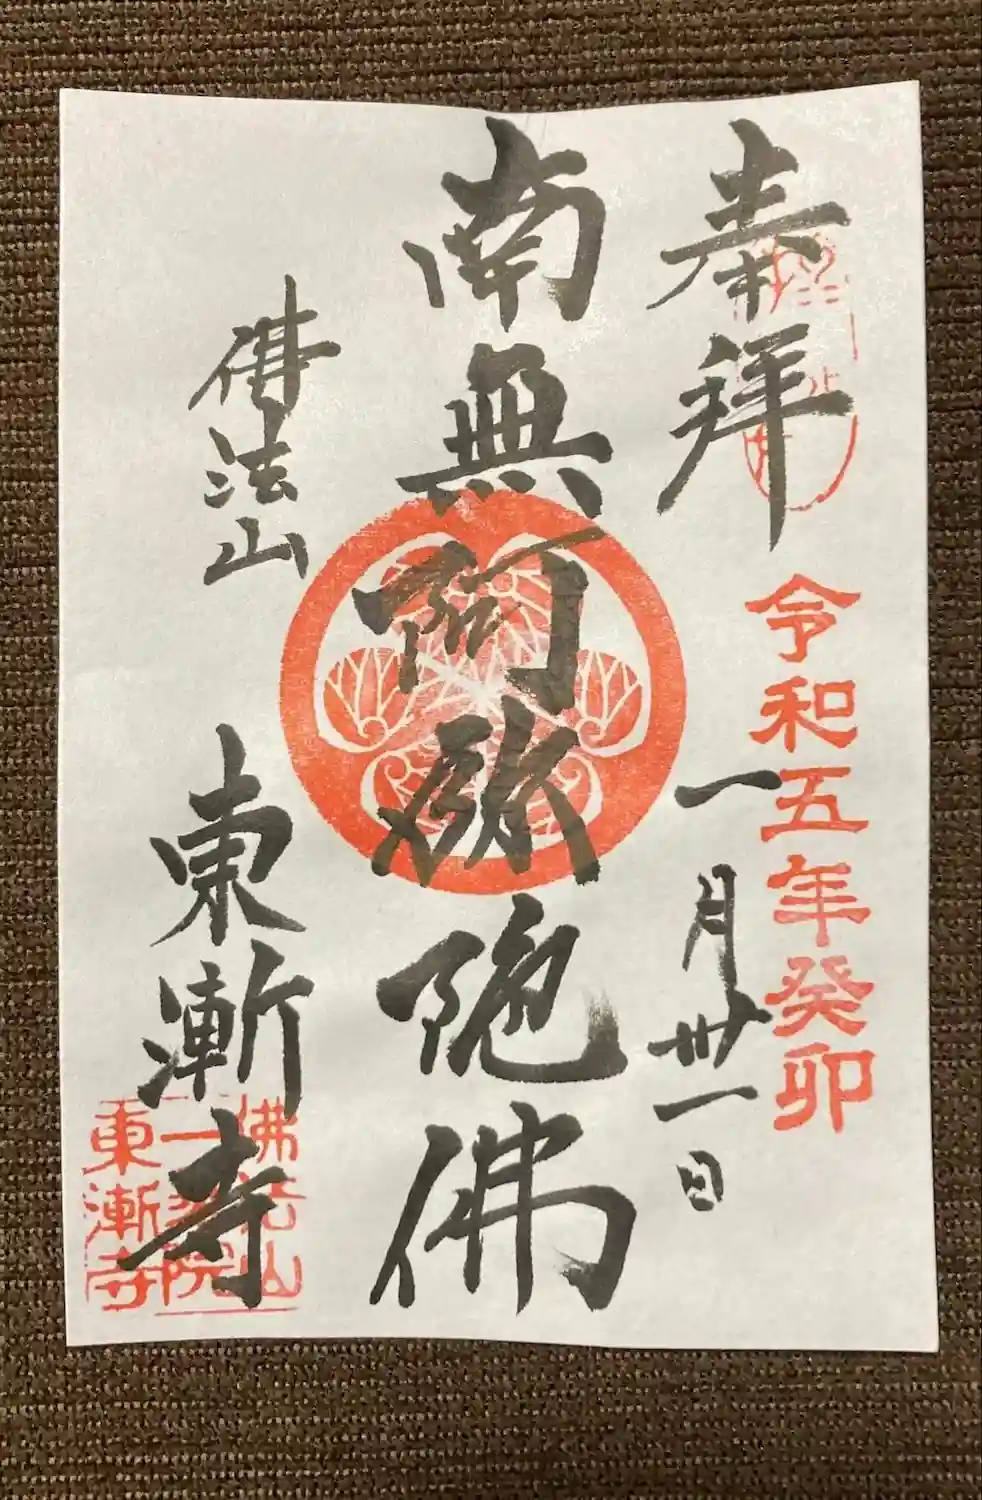 奉拝
令和五年癸卯
一月卅一日
南無阿弥陀佛
佛法山
東漸寺
佛法山
一乗院
東漸寺